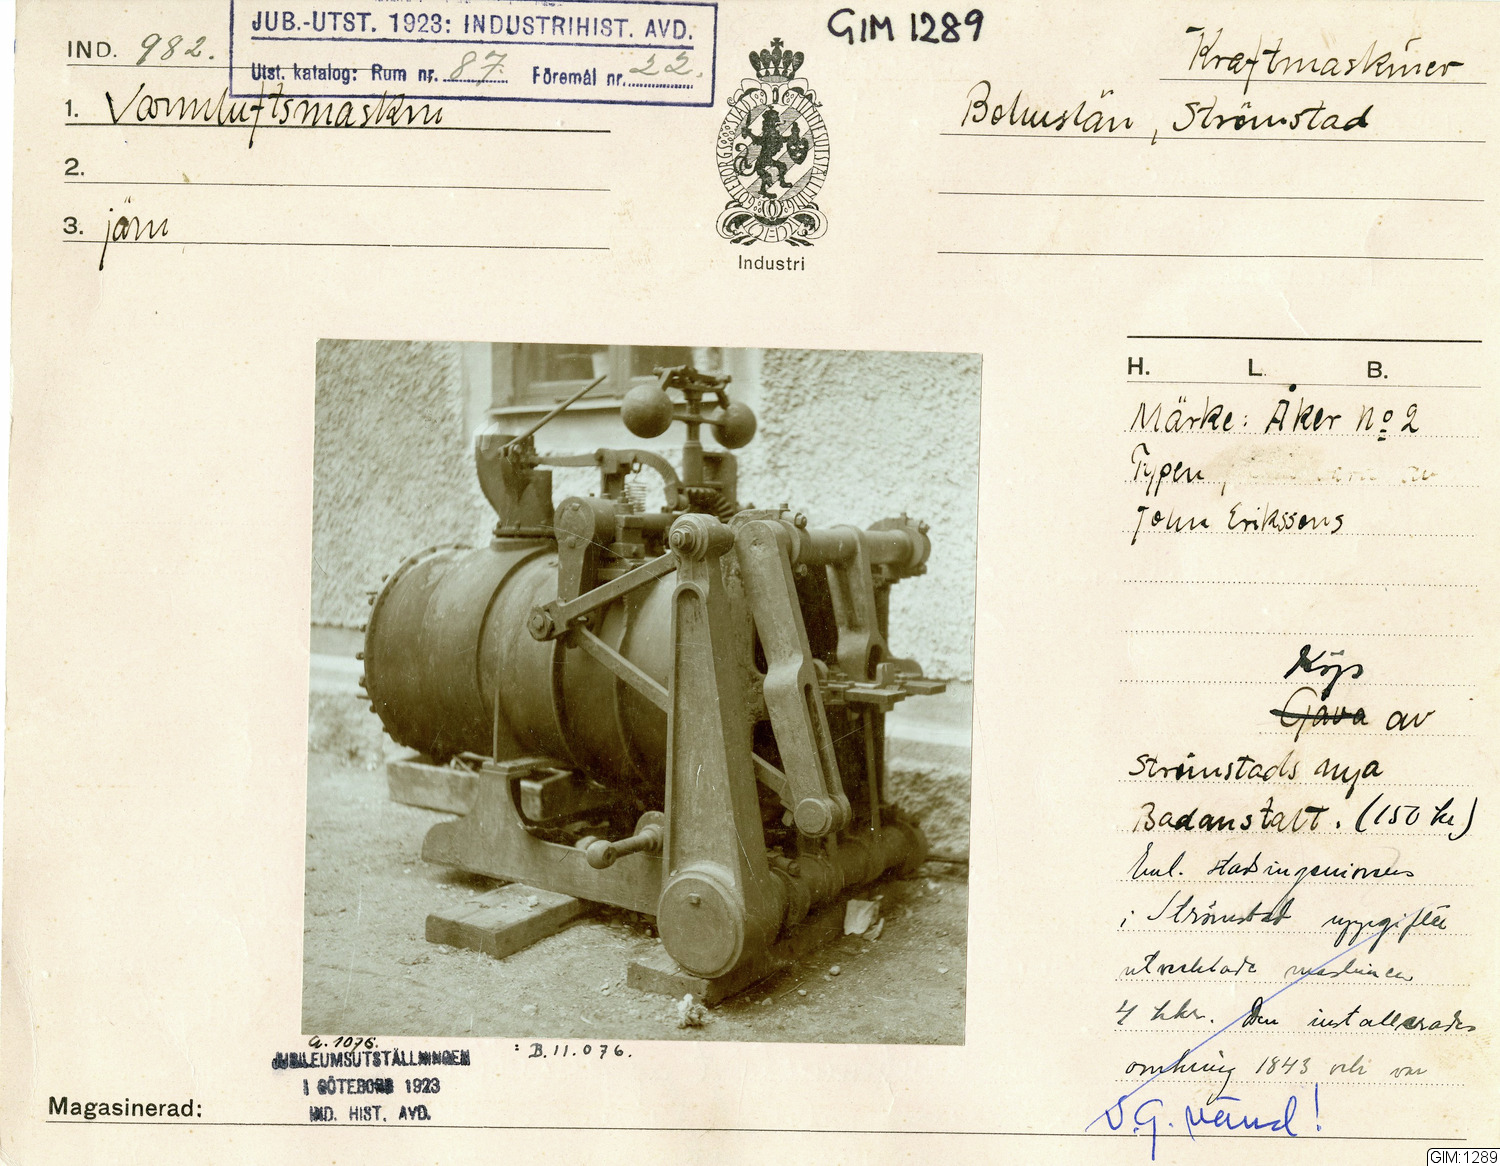 IND. 982.
JUB.-UTST. 1923: INDUSTRIHIST. AVD.
Utst. katalog: Rum nr. 87. Föremål nr. 22.
GIM 1289
Kraftmaskiner
1. Varmluftsmaskin
Bohuslän, Strömstad
2.
3. järn
GÖTEBORGS STADS JUBILEUMSUTSTÄLLNING
Industri
H. L. B.
Märke: Åker No 2
Typen,
John Erikssons
Köps
Gåva av
Strömstads nya
Badanstalt. (150 kr)
Enl. stadsingeniörens
i Strömstad uppgifter
utvecklade maskinen
4 hkr. Den installerades
omkring 1843 och var
V.G. vänd!
a. 1076.
: B. 11.076.
JUBILEUMSUTSTÄLLNINGEN
I GÖTEBORG 1923
IND. HIST. AVD.
Magasinerad:
GIM:1289